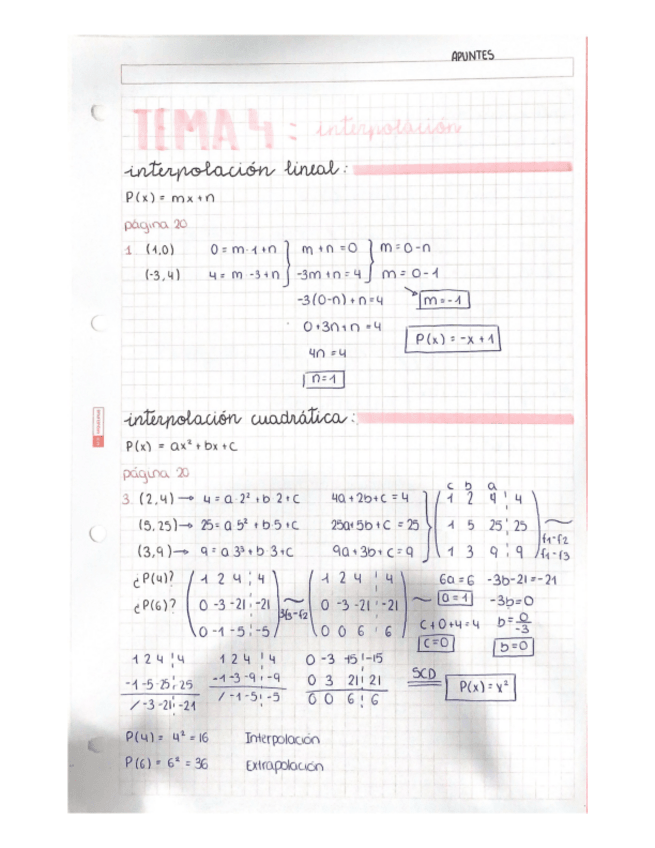 APUNTES
TEMA 4: interpolación
interpolación lineal:
P(x) = mx+n
página 20
1 (1,0) 0 = m·1+n } m+n=0 } m=0-n
(-3,4) 4 = m·-3+n } -3m+n=4 } m=0-1
-3(0-n)+n=4 m=-1
0+3n+n=4 P(x)=-x+1
4n=4
n=1
interpolación cuadrática:
P(x) = ax²+bx+c
página 20
c b a
3 (2,4)→ 4=a·2²+b·2+c 4a+2b+c=4 1 2 4 4
(5,25)→ 25=a·5²+b·5+c 25a+5b+c=25 1 5 25 25
f1-f2
(3,9)→ 9=a·3²+b·3+c 9a+3b+c=9 1 3 9 9 f1-f3
¿P(4)? 1 2 4 4 1 2 4 4 6a=6 -3b-21=-21
¿P(6)? 0 -3 -21 -21 3f3-f2 0 -3 -21 -21 a=1 -3b=0
0 -1 -5 -5 0 0 6 6 c+0+4=4 b=0/-3
c=0 b=0
1 2 4 4 1 2 4 4 0 -3 -15 -15
-1 -5 -25 25 -1 -3 -9 -9 0 3 21 21 SCD P(x)=x²
/ -3 -21 -21 / -1 -5 -5 0 0 6 6
P(4) = 4² = 16 Interpolación
P(6) = 6² = 36 Extrapolación